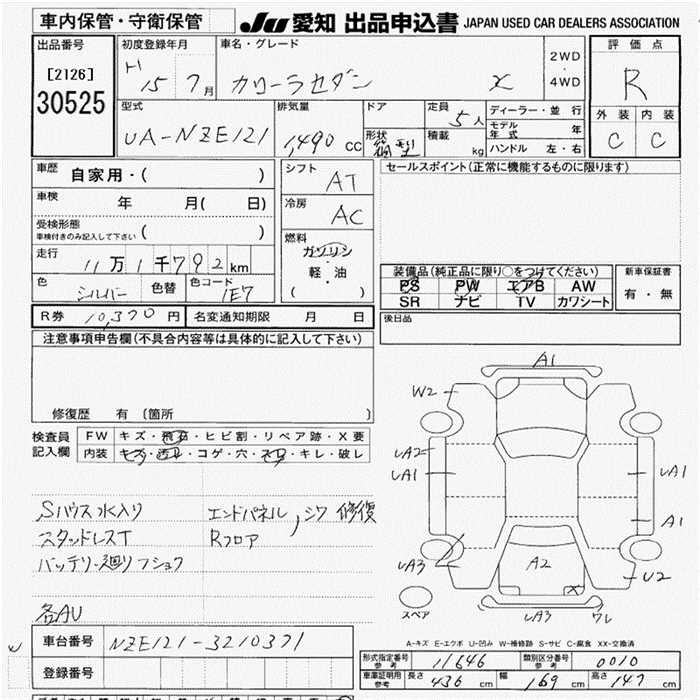 車内保管・守衛保管
JU 愛知 出品申込書 JAPAN USED CAR DEALERS ASSOCIATION
出品番号
[2126]
30525
初度登録年月
H 15 7月
車名・グレード
カローラセダン X
2WD
・
4WD
評価点
R
型式
UA-NZE121
排気量
1,490 cc
ドア
形状
箱型
定員
5人
積載
kg
ディーラー・並行
モデル年式 年
ハンドル 左・右
外装 内装
C C
車歴 自家用・( )
車検 年 月( 日)
受検形態
車検付きのみ記入して下さい ( )
走行 11万1千792km
色 シルバー 色替 色コード 1E7
シフト
AT
冷房
AC
燃料
ガソリン
軽・油
( )
セールスポイント(正常に機能するものに限ります)
装備品(純正品に限り○をつけてください)
PS PW エアB AW
SR ナビ TV カワシート
新車保証書
有・無
R券 10,370円 名変通知期限 月 日
後日品
注意事項申告欄(不具合内容等は具体的に記入して下さい)
修復歴 有 〔箇所 〕
検査員
記入欄
FW キズ・飛石・ヒビ割・リペア跡・X要
内装 キズ・汚れ・コゲ・穴・スレ・キレ・破レ
Sハウス水入り エンドパネル,シワ 修復
スタッドレスT Rフロア
バッテリー廻りフショク
各AU
A1
W2
UA2
UA1
UA1
A1
UA3
A2
U2
X
UA3 ワレ
スペア
A-キズ E-エクボ U-凹み W-補修跡 S-サビ C-腐食 XX-交換済
車台番号 NZE121-3210371
登録番号
形式指定番号
参考
11646
類別区分番号
参考
0010
車庫証明用
参考
長さ 436 cm 幅 169 cm 高さ 147 cm